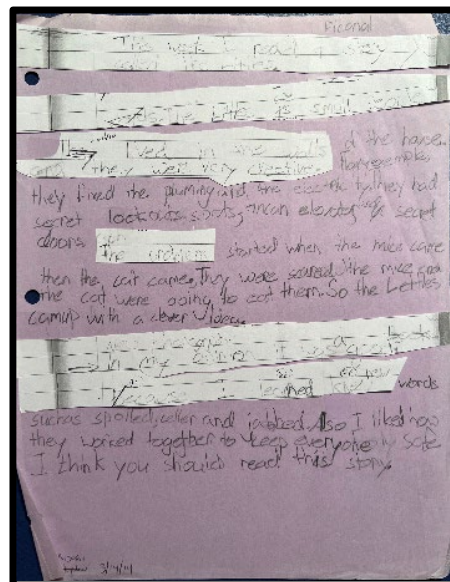 Ficanal
This week I read a story
called the Littles
The Littles is small people
They lived in the walls of the house
and they were very creative. For example,
they fixed the pluming and the electricity. They had
secret lookouts spots, an elevator secret
doors The problem started when the mice came
then the cat came. They were scared the mice and
the cat were going to eat them. So the Littles
camup with a clever idea.
In my opinion a book
because I learned new words
suchas spoiled, celler and jabbed. Also I liked how
they worked together to keep everyone safe
I think you should read this story.